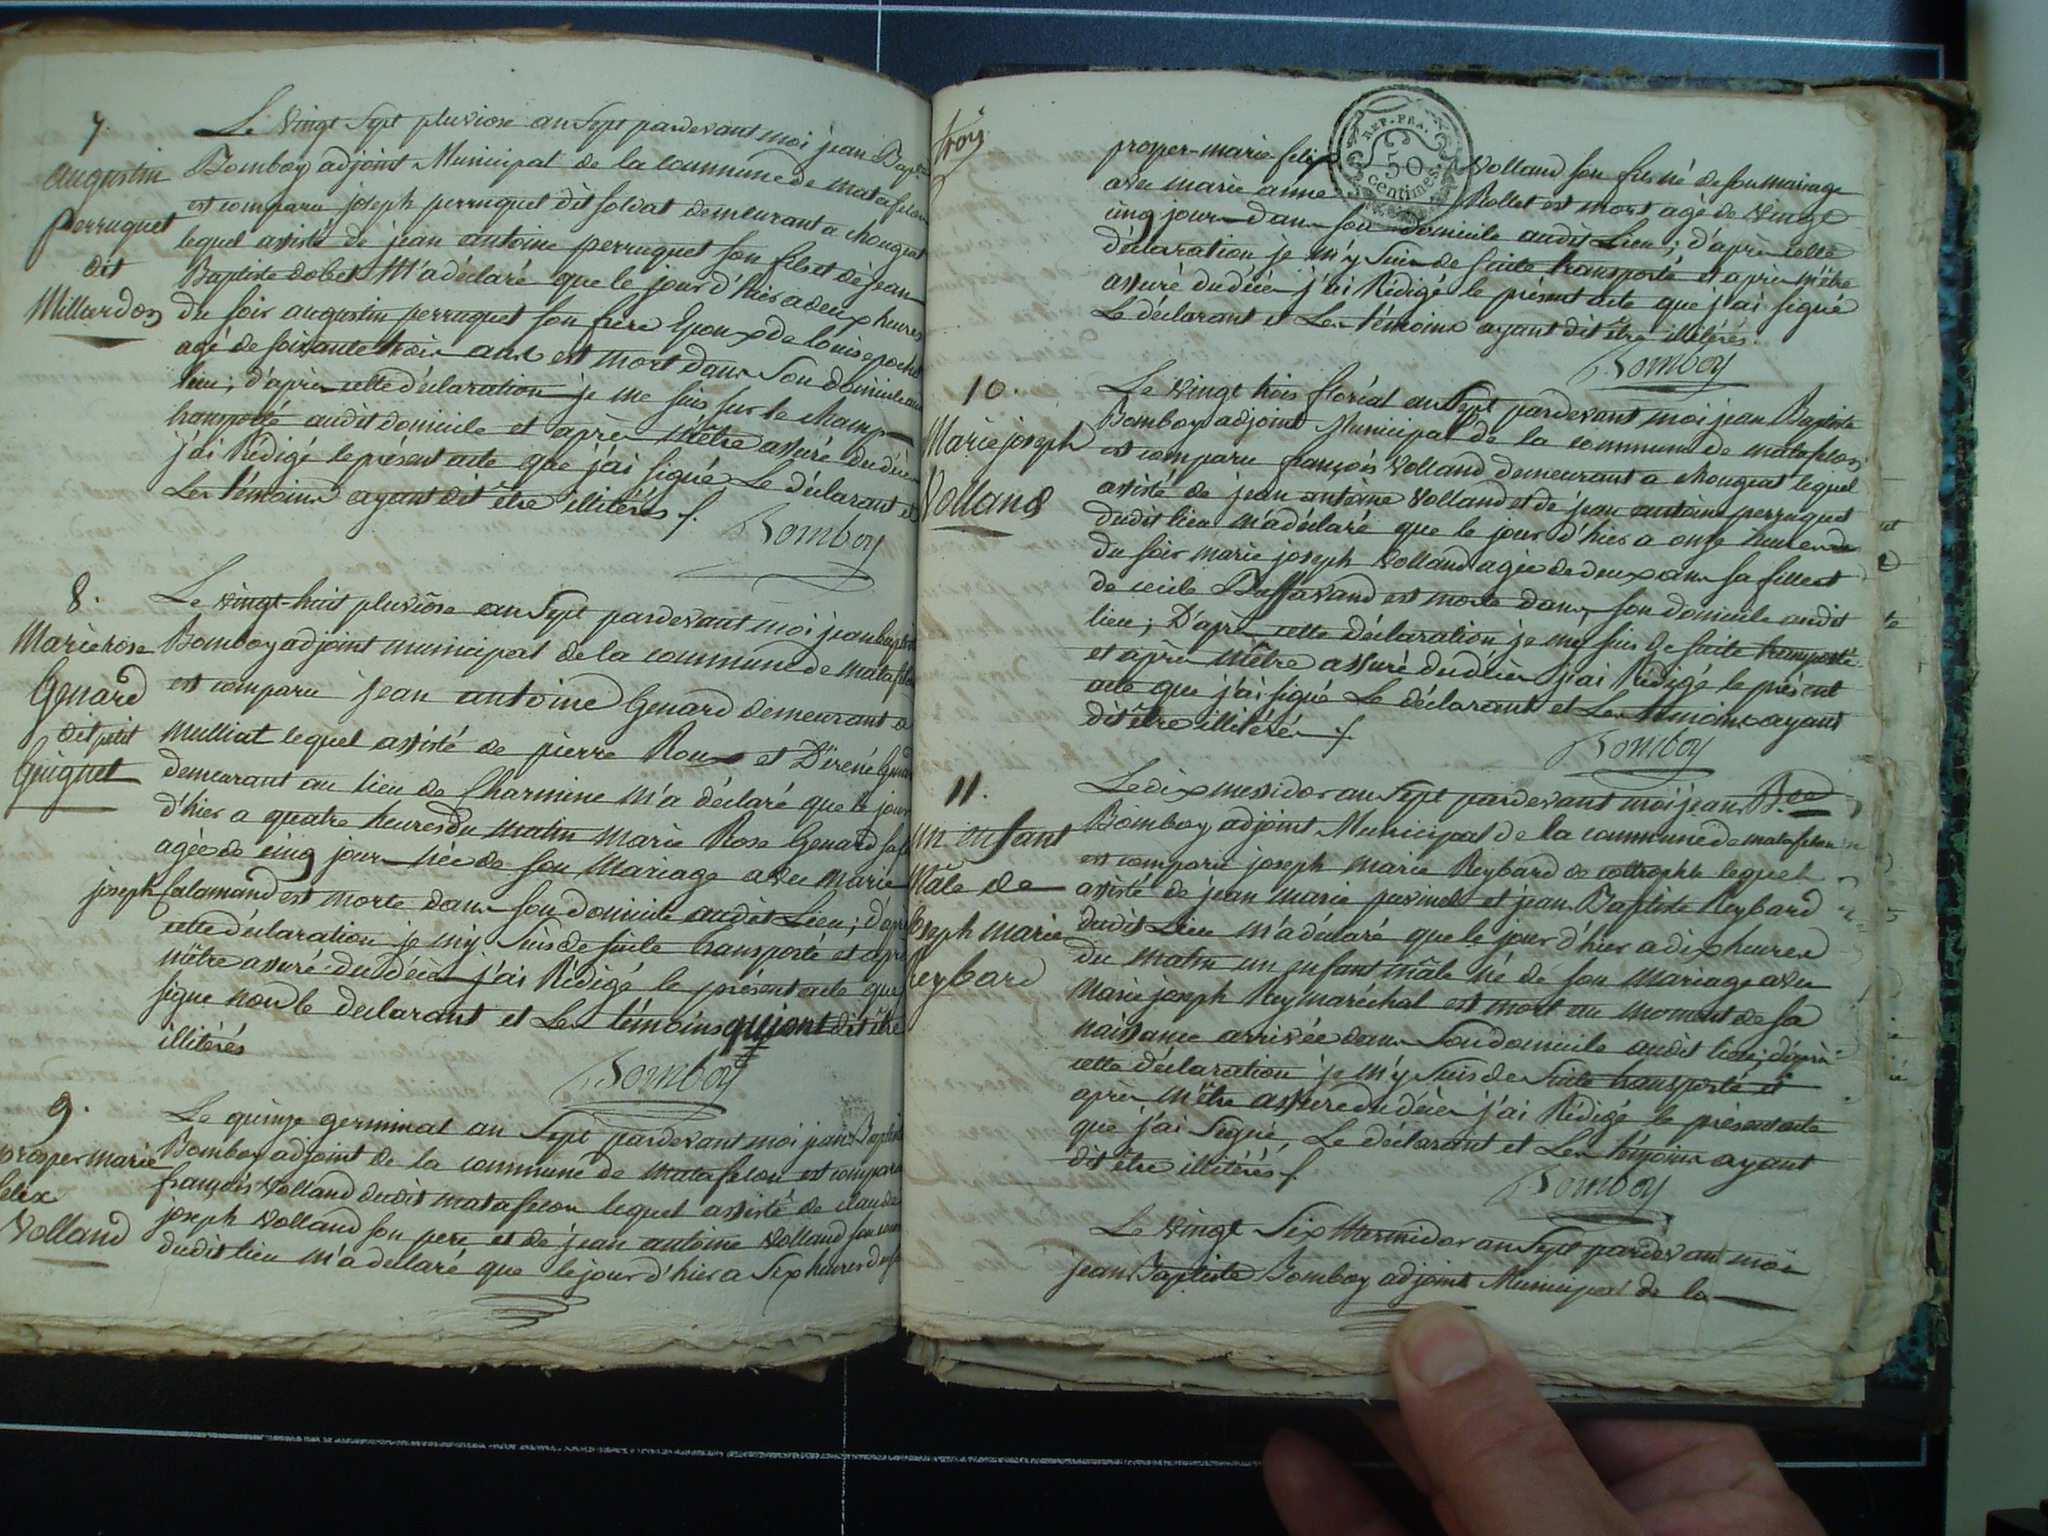 7.
augustin
perruquet
dit
Millardon
Le vingt Sept pluviose an Sept pardevant moi jean Bapt
Bomboy adjoint Municipal de la commune de matafelon
est comparu joseph perruquet dit soldat demeurant a chougeat
lequel assisté de jean antoine perruquet son fils et de jean
Baptiste Gobet M'a déclaré que le jour d'hier a deux heures
du soir augustin perruquet son frere Epoux de louise poncet
agé de soixante trois ans est mort dans son domicile audit
lieu; d'après cette déclaration je me suis sur le champ
transporté audit domicile et après m'être assuré du décès
j'ai Rédigé le présent acte que j'ai signé Le déclarant et
Les témoins ayant dit être illitérés
Bomboy
8.
Marie rose
Genard
dit petit
Guiguet
Le vingt-huit pluviôse an Sept pardevant moi jean baptiste
Bomboy adjoint municipal de la commune de matafelon
est comparu jean antoine Genard demeurant a
Mulliat lequel assisté de pierre Roux et D'irené Genard
demeurant au lieu de Charmine m'a déclaré que le jour
d'hier a quatre heures du matin marie Rose Genard sa fi
agée de cinq jours née de son Mariage avec marie
joseph Calamand est morte dans son domicile audit Lieu; d'apr
cette déclaration je m'y suis de suite transporté et apr
m'être assuré du décès j'ai Rédigé le présent acte que
signe non le declarant et Les témoins qui ont dit être
illitérés
Bomboy
9.
prosper marie
felix
Volland
Le quinze germinal an Sept pardevant moi jean Baptis
Bomboy adjoint de la commune de matafelon est compar
françois Volland dudit matafelon lequel assisté de claude
joseph Volland son pere et de jean antoine Volland son cou
dudit lieu m'a declaré que le jour d'hier a Six heures du
trois
REP. FRA.
50
centimes
prosper-marie-felix Volland son fils né de son mariage
avec marie anne Rollet est mort agé de vingt
cinq jours dans son domicile audit Lieu; d'après cette
déclaration je m'y suis de suite transporté et après m'être
assuré du décès j'ai Rédigé le présent acte que j'ai signé
Le déclarant et Les témoins ayant dit être illitérés.
Bomboy
10.
Marie joseph
Volland
Le vingt trois floréal an Sept pardevant moi jean Baptiste
Bomboy adjoint Municipal de la commune de matafelon
est comparu françois Volland demeurant a chougeat lequel
assisté de jean antoine Volland et de jean antoine perruquet
dudit lieu m'a déclaré que le jour d'hier a onze heures
du soir marie joseph Volland agée de deux ans sa fille et
de cecile Buffavand est morte dans son domicile audit
lieu; D'après cette déclaration je m'y suis de suite transporté
et après m'être assuré du décès j'ai Rédigé le présent
acte que j'ai signé Le déclarant et Les témoins ayant
dit être illitérés
Bomboy
11.
un enfant
Mâle de
joseph marie
Reybard
Le dix messidor an Sept pardevant moi jean Bte
Bomboy adjoint Municipal de la commune de matafelon
est comparu joseph marie Reybard de lequel
assisté de jean marie et jean Baptiste Reybard
dudit Lieu m'a déclaré que le jour d'hier a dix heures
du matin un enfant mâle né de son mariage avec
Marie joseph Reymaréchal est mort au moment de sa
naissance arrivée dans son domicile audit lieu; d'après
cette déclaration je m'y suis de suite transporté et
après m'être assuré du décès j'ai Rédigé le présent acte
que j'ai Signé, Le déclarant et Les témoins ayant
dit être illitérés
Bomboy
Le vingt Six thermidor an Sept pardevant moi
jean Baptiste Bomboy adjoint Municipal de la